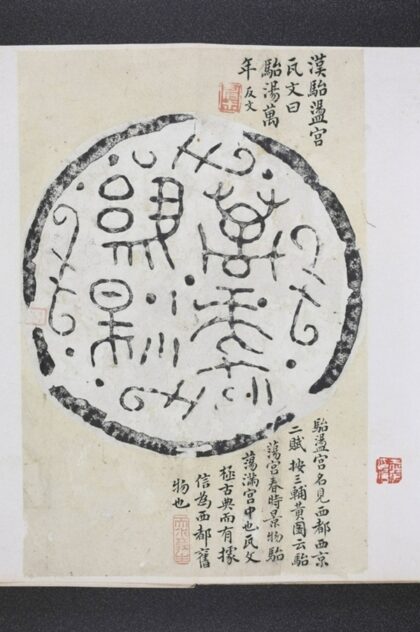 漢駘盪宮
瓦文曰
駘湯萬
年 反文
駘湯
萬年
駘盪宮名見西都西京
二賦按三輔黄圖云駘
蕩宮春時景物駘
蕩滿宮中也瓦文
極古典而有據
信為西都舊
物也